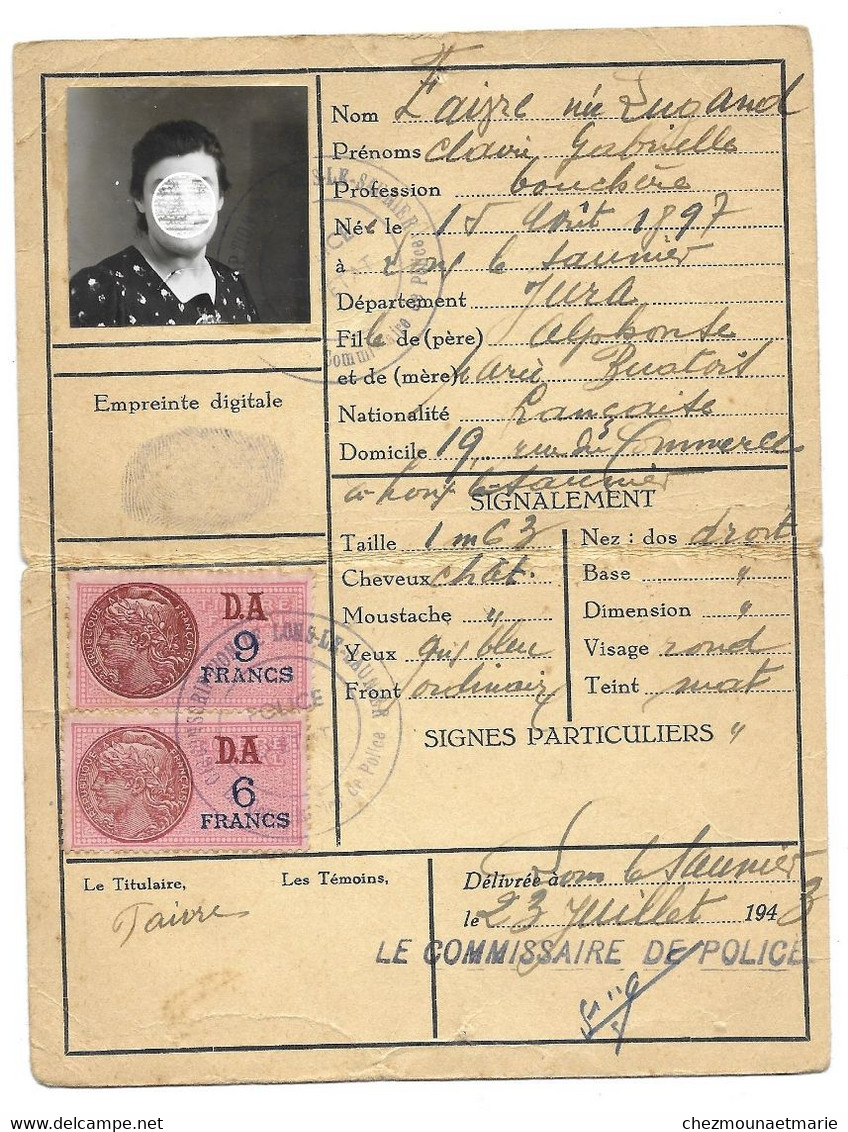 Nom Faivre née Lugand
Prénoms Claire Gabrielle
Profession bouchère
Née le 15 Août 1897
à Lons le Saunier
Département Jura
Fille de (père) Alphonse
et de (mère) Marie
Nationalité Française
Domicile 19 rue du Commerce
à Lons le Saunier
Empreinte digitale
SIGNALEMENT
Taille 1m63
Cheveux chât.
Moustache "
Yeux gris bleu
Front ordinaire
Nez : dos droit
Base "
Dimension "
Visage rond
Teint mat
SIGNES PARTICULIERS "
RÉPUBLIQUE FRANÇAISE
D.A
9
FRANCS
RÉPUBLIQUE FRANÇAISE
D.A
6
FRANCS
LONS-LE-SAUNIER
POLICE
Le Titulaire,
Faivre
Les Témoins,
Délivrée à Lons le Saunier
le 23 Juillet 1943
LE COMMISSAIRE DE POLICE
chezmounaetmarie